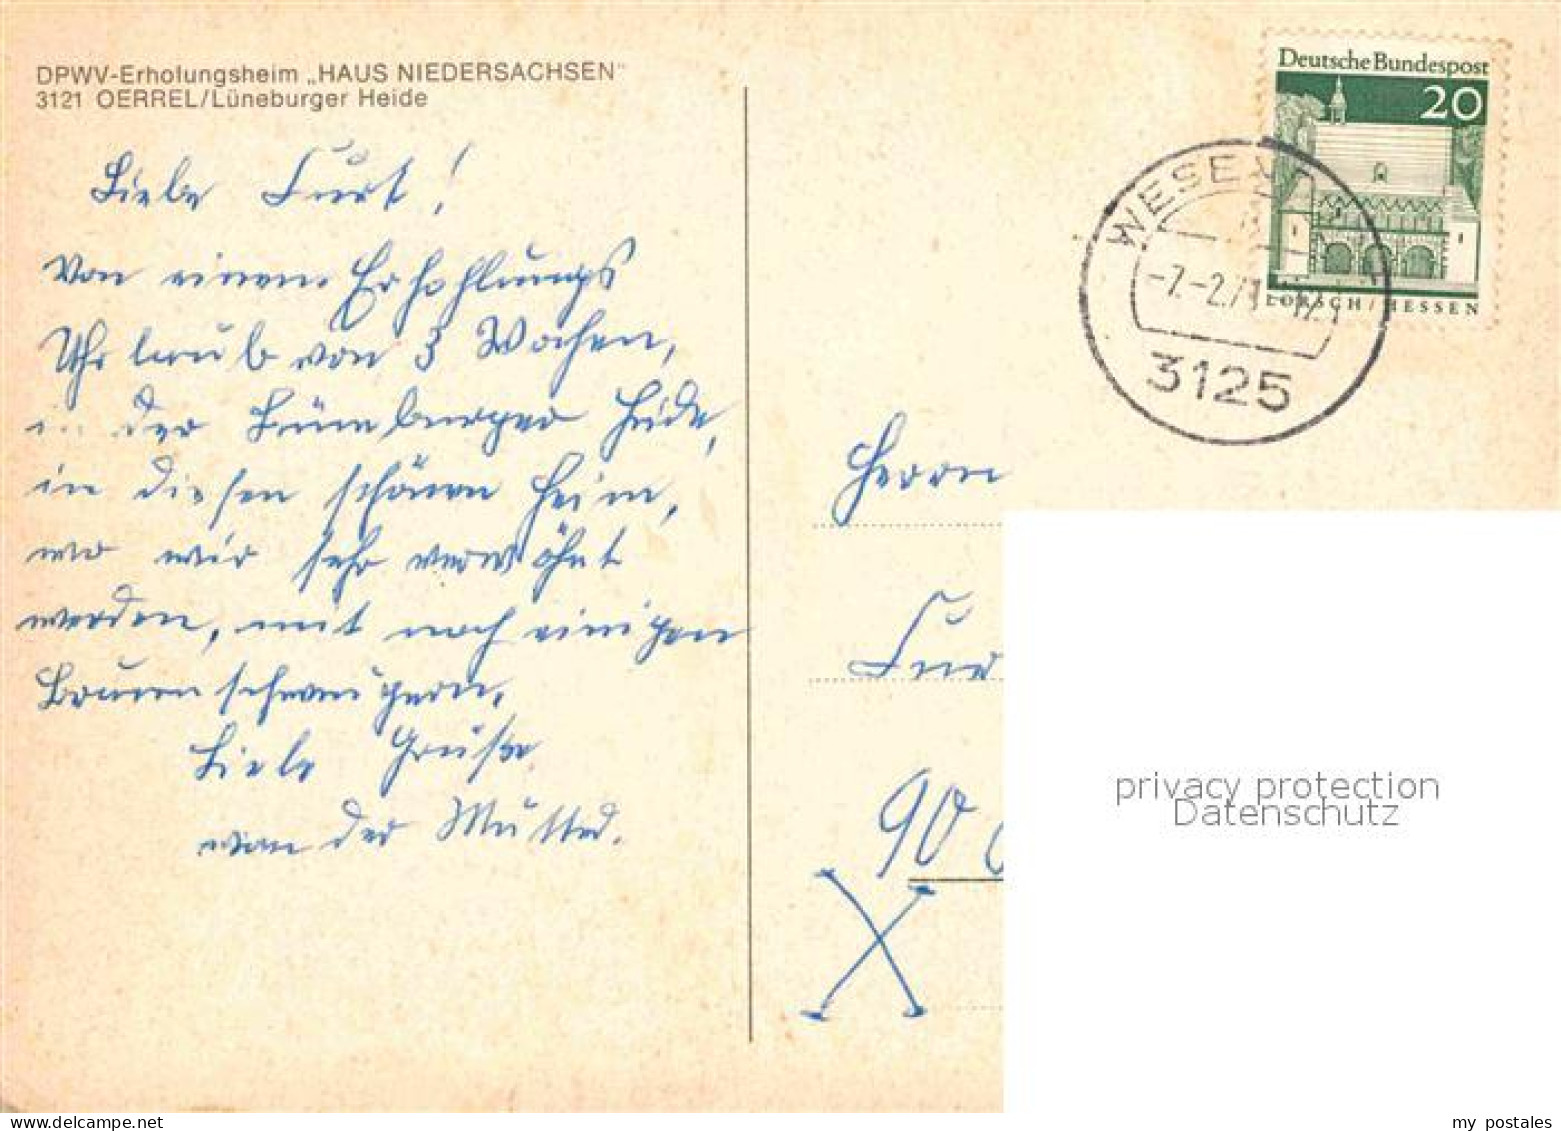 DPWV-Erholungsheim „HAUS NIEDERSACHSEN"
3121 OERREL/Lüneburger Heide
Liebe Kurt!
Von einem Erhohlungs
Uhrlaub von 3 Wochen,
in der Lüneburger Heide,
in diesen schönen Heim,
wo wir sehr verwöhnt
werden, mit noch einigen
Braunschweigern,
Liebe Grüße
von der Mutter.
Deutsche Bundespost
20
LORSCH/HESSEN
-7.-2.71
3125
Herrn
90
privacy protection
Datenschutz
my postales